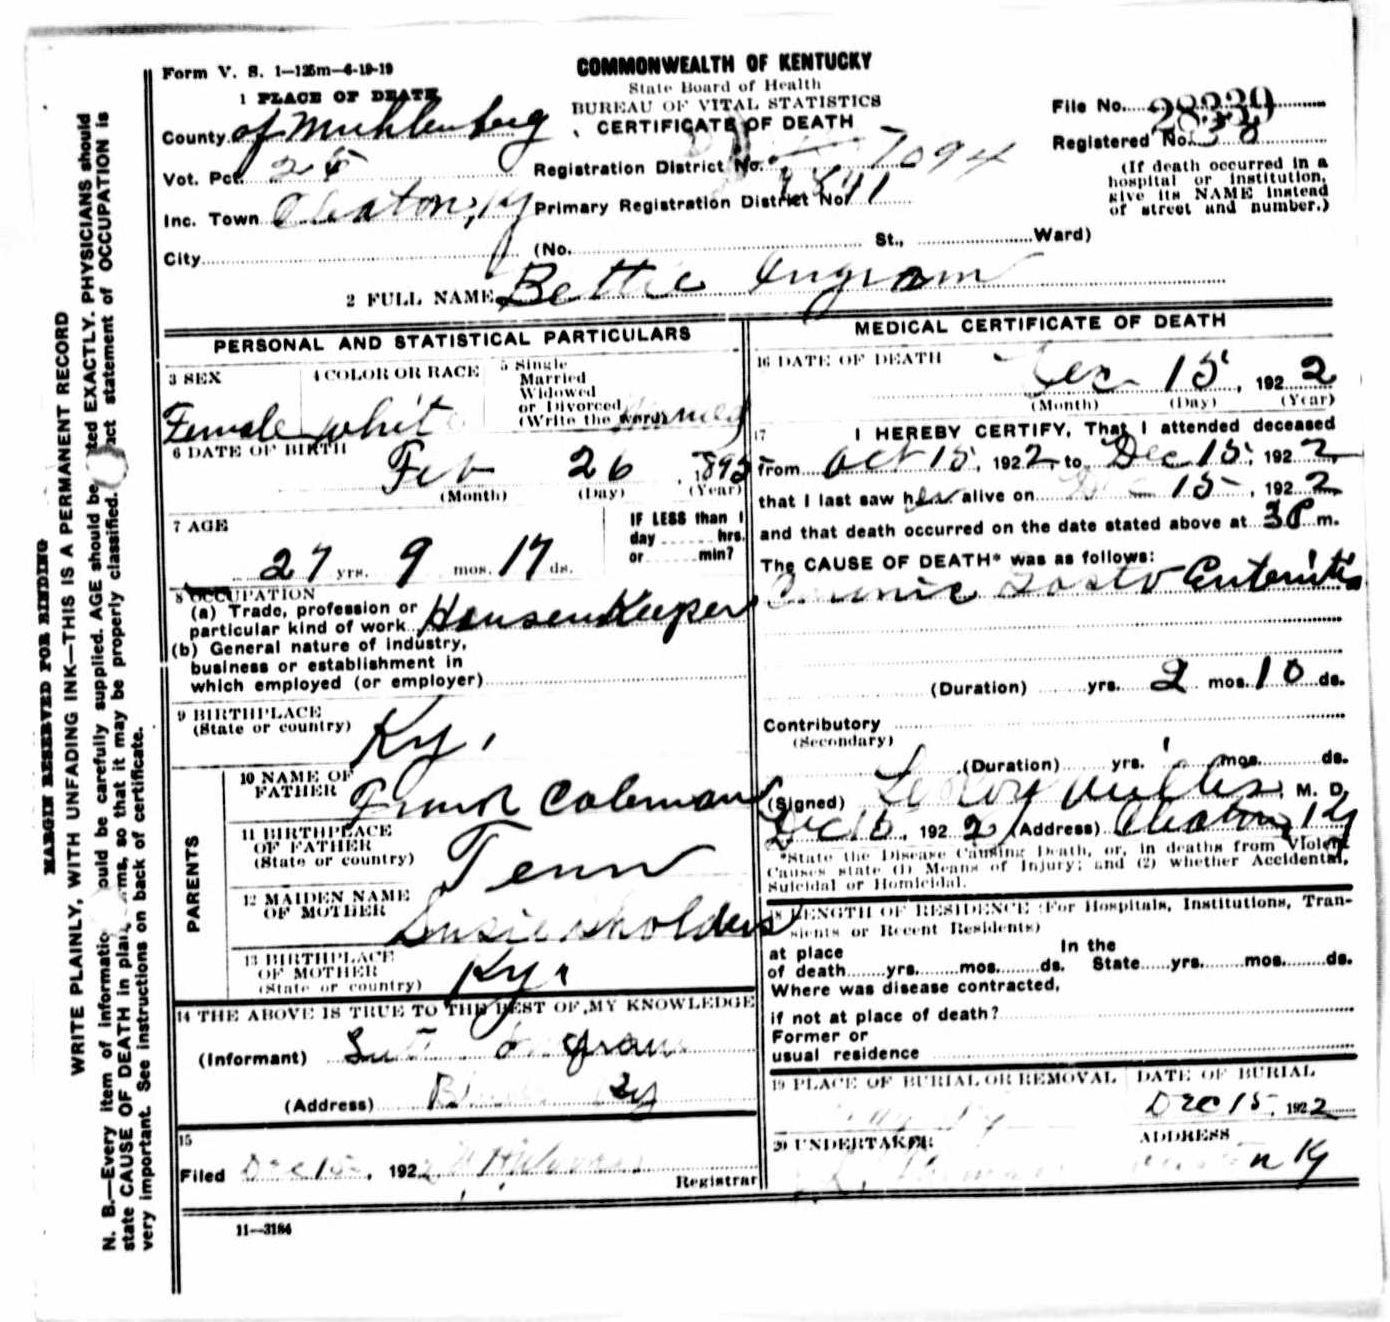 Form V. S. 1—125m—4-19-19
COMMONWEALTH OF KENTUCKY
State Board of Health
BUREAU OF VITAL STATISTICS
CERTIFICATE OF DEATH
1 PLACE OF DEATH
County of Muhlenberg
Vot. Pct. 25
Inc. Town Cleaton, Ky
City (No. St., Ward)
Registration District No. 7094
Primary Registration District No.
File No. 28339
Registered No. 38
(If death occurred in a
hospital or institution,
give its NAME instead
of street and number.)
2 FULL NAME Bettie Ingram
PERSONAL AND STATISTICAL PARTICULARS
3 SEX
Female
4 COLOR OR RACE
White
5 Single
Married
Widowed
or Divorced
(Write the word) Married
6 DATE OF BIRTH
Feb 26, 1895
(Month) (Day) (Year)
7 AGE
27 yrs. 9 mos. 17 ds.
IF LESS than 1
day hrs.
or min?
8 OCCUPATION
(a) Trade, profession or
particular kind of work HousenKeeper
(b) General nature of industry,
business or establishment in
which employed (or employer)
9 BIRTHPLACE
(State or country) Ky.
PARENTS
10 NAME OF
FATHER Frank Coleman
11 BIRTHPLACE
OF FATHER
(State or country) Tenn
12 MAIDEN NAME
OF MOTHER Susie Sholders
13 BIRTHPLACE
OF MOTHER
(State or country) Ky.
14 THE ABOVE IS TRUE TO THE BEST OF MY KNOWLEDGE
(Informant) Ingram
(Address) Ky
15
Filed Dec 15, 1922
Registrar
11—3184
MEDICAL CERTIFICATE OF DEATH
16 DATE OF DEATH
Dec 15, 1922
(Month) (Day) (Year)
17
I HEREBY CERTIFY, That I attended deceased
from Oct 15, 1922, to Dec 15, 1922,
that I last saw her alive on Dec 15, 1922
and that death occurred on the date stated above at 3 P m.
The CAUSE OF DEATH* was as follows:
Cronic Gastro Enteritis
(Duration) yrs. 2 mos. 10 ds.
Contributory
(Secondary)
(Duration) yrs. mos. ds.
(Signed) LeRoy Willis, M. D.
Dec 15, 1922 (Address) Cleaton, Ky
*State the Disease Causing Death, or, in deaths from Violent
Causes state (1) Means of Injury; and (2) whether Accidental,
Suicidal or Homicidal.
18 LENGTH OF RESIDENCE (For Hospitals, Institutions, Tran-
sients or Recent Residents)
at place
of death yrs. mos. ds.
In the
State yrs. mos. ds.
Where was disease contracted,
if not at place of death?
Former or
usual residence
19 PLACE OF BURIAL OR REMOVAL
DATE OF BURIAL
Dec 15, 1922
20 UNDERTAKER
ADDRESS
Ky
MARGIN RESERVED FOR BINDING
WRITE PLAINLY, WITH UNFADING INK—THIS IS A PERMANENT RECORD
N. B.—Every item of information should be carefully supplied. AGE should be stated EXACTLY. PHYSICIANS should
state CAUSE OF DEATH in plain terms, so that it may be properly classified. Exact statement of OCCUPATION is
very important. See instructions on back of certificate.